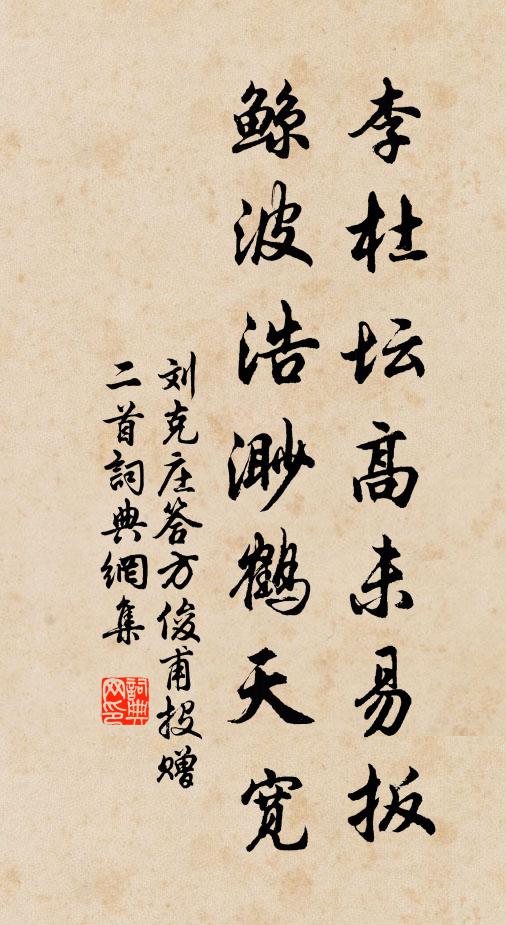 李杜坛高未易扳
鲸波浩渺鹤天宽
刘克庄答方俊甫投赠
二首詞典網集
詞典
网印